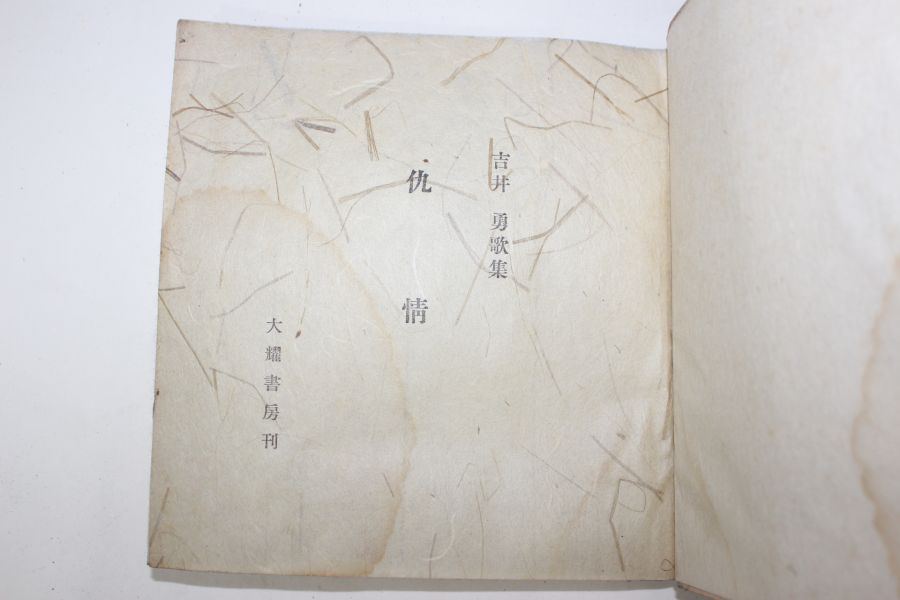 吉井 勇歌集
仇 情
大耀書房刊